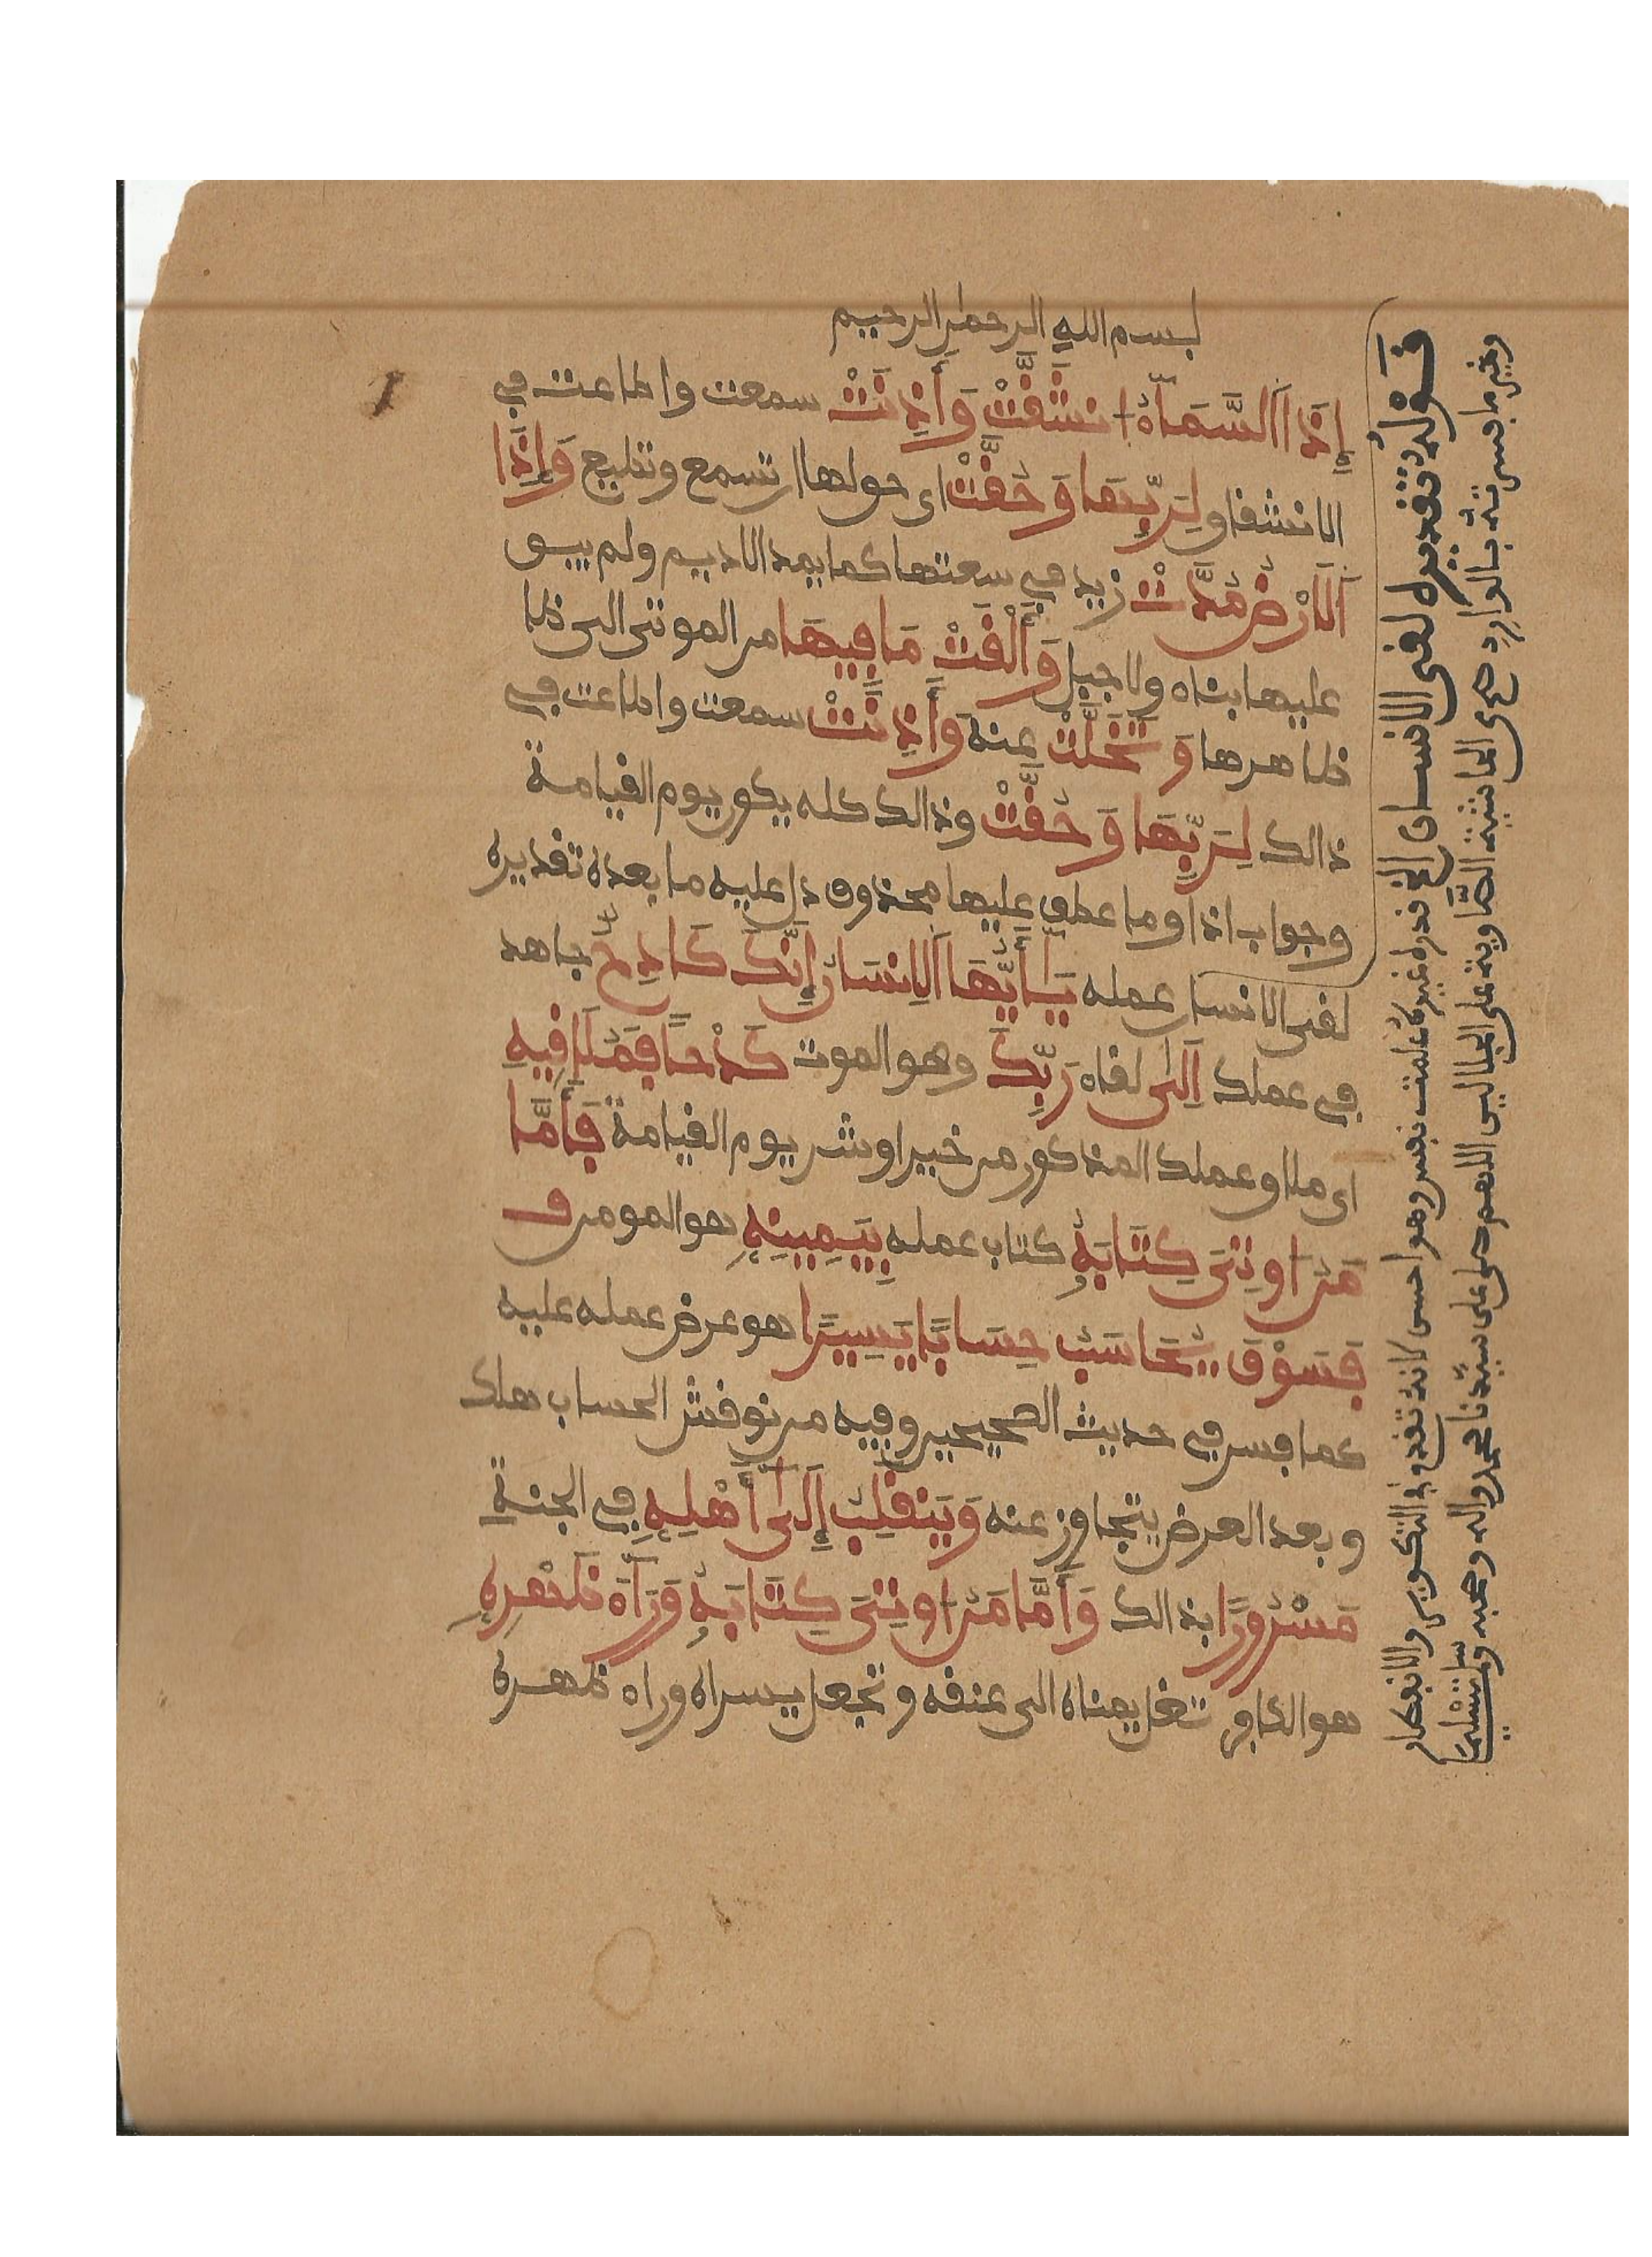 بسم الله الرحمن الرحيم
إِذَا اَلسَّمَآءُ انشَقَّتْ وَأَذِنَتْ سمعت واطاعت في
الانشقاق لِرَبِّهَا وَحُقَّتْ اى حق لها ان تسمع وتطيع وَإِذَا
اَلَارْضُ مُدَّتْ زيد في سعتها كما يمد الاديم ولم يبق
عليها بناء ولا جبل وَأَلْقَتْ مَا فِيهَا من الموتى الى ظا
ظاهرها وَتَخَلَّتْ عنه وَأَذِنَتْ سمعت واطاعت في
ذالك لِرَبِّهَا وَحُقَّتْ وذالك كله يكون يوم القيامة
وجواب اذا وما عطف عليها محذوف دل عليه ما بعده تقديره
لقى الانسان عمله يَٰأَيُّهَا اَلِانسَانُ إِنَّكَ كَادِحٌ جاهد
في عملك اِلَىٰ لقاء رَبِّكَ وهو الموت كَدْحًا فَمُلَٰقِيهِ
اى ملاق عملك المذكور من خير او شر يوم القيامة فَأَمَّا
مَنُ اوتِىَ كِتَابَهُ كتاب عمله بِيَمِينِهِ هو المومن ف
فَسَوْفَ يُحَاسَبُ حِسَابًا يَسِيرًا هو عرض عمله عليه
كما فسر في حديث الصحيحين وفيه من نوقش الحساب هلك
وبعد العرض يتجاوز عنه وَيَنقَلِبُ إِلَىٰ أَهْلِهِ في الجنة
مَسْرُورًا بذالك وَأَمَّا مَنُ اوتِىَ كِتَابَهُ وَرَآءَ ظَهْرِهِ
هو الكافر تغل يمناه الى عنقه وتجعل يسراه وراء ظهره
قَوْلُهُ تقديره لقى الانسان الخ قدره غيره علمت نفس وهو احسن لانه تقدم في التكوير والانفطار
وخير ما فسرته بالوارد هى الحاشية الصاوية على الجلالين اللهم صل على سيدنا محمد واله وصحبه وسلم تسليما